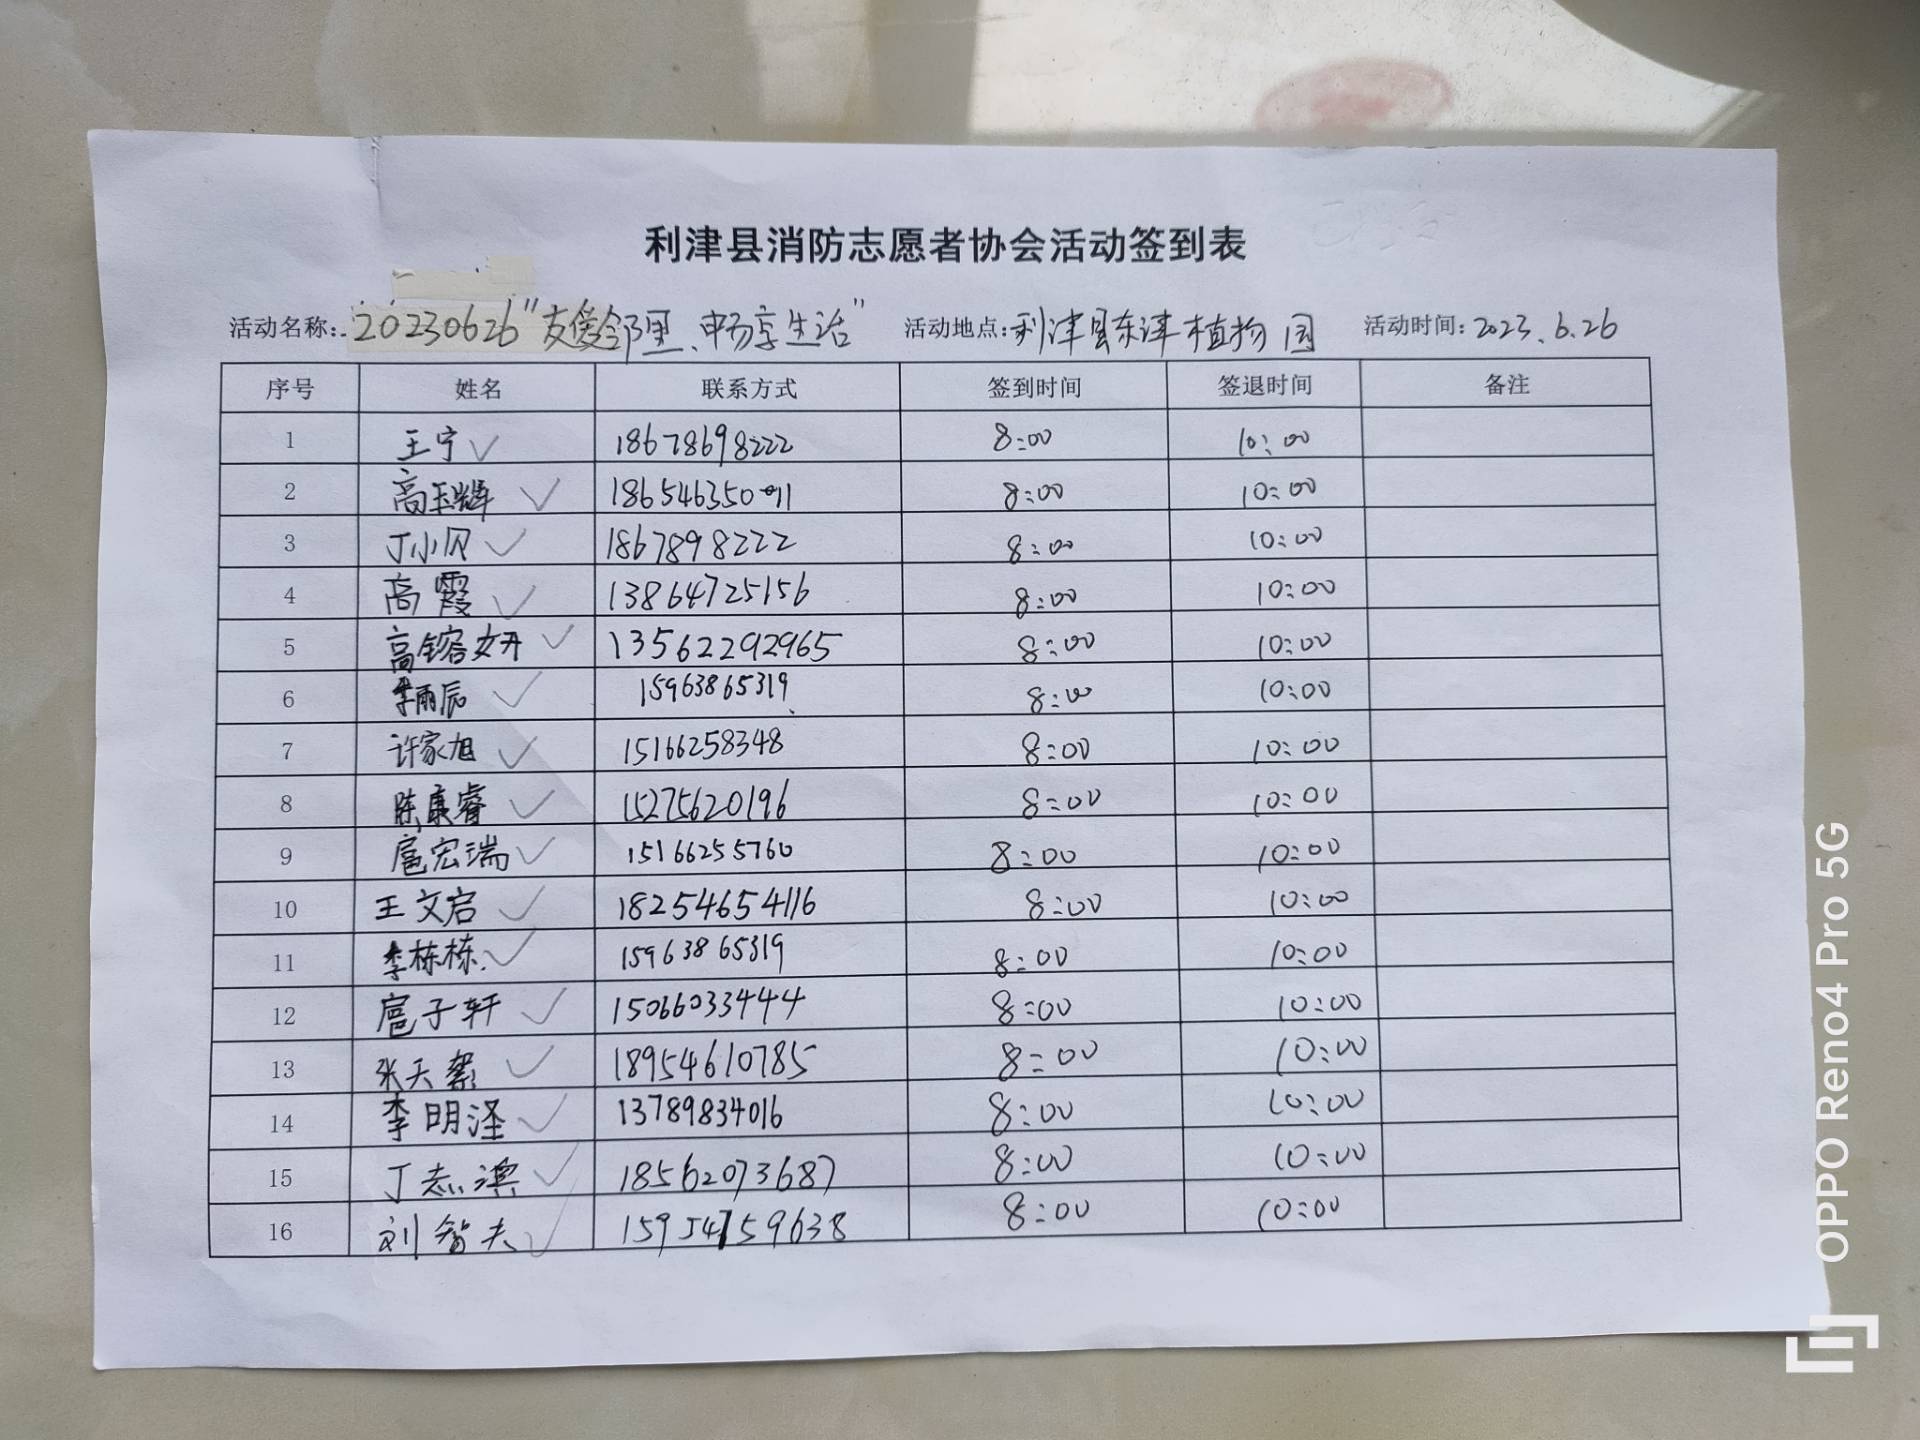 利津县消防志愿者协会活动签到表
活动名称: 20230626"友爱邻里、畅享生活" 活动地点: 利津县东津植物园 活动时间: 2023.6.26
序号 姓名 联系方式 签到时间 签退时间 备注
1 王宁 ✓ 18678698222 8:00 10:00
2 高玉辉 ✓ 186546350 11 8:00 10:00
3 丁小贝 ✓ 1867898222 8:00 10:00
4 高霞 ✓ 13864725156 8:00 10:00
5 高镕妍 ✓ 13562292965 8:00 10:00
6 李雨辰 ✓ 15963865319 8:00 10:00
7 许家旭 ✓ 15166258348 8:00 10:00
8 陈康睿 ✓ 15275620196 8:00 10:00
9 扈宏瑞 ✓ 15166255760 8:00 10:00
10 王文启 ✓ 18254654116 8:00 10:00
11 李栋栋 ✓ 15963865319 8:00 10:00
12 扈子轩 ✓ 15066033444 8:00 10:00
13 张天 ✓ 18954610785 8:00 10:00
14 李明泽 ✓ 13789834016 8:00 10:00
15 丁志 ✓ 18562073687 8:00 10:00
16 刘智夫 ✓ 15954759638 8:00 10:00
OPPO Reno4 Pro 5G